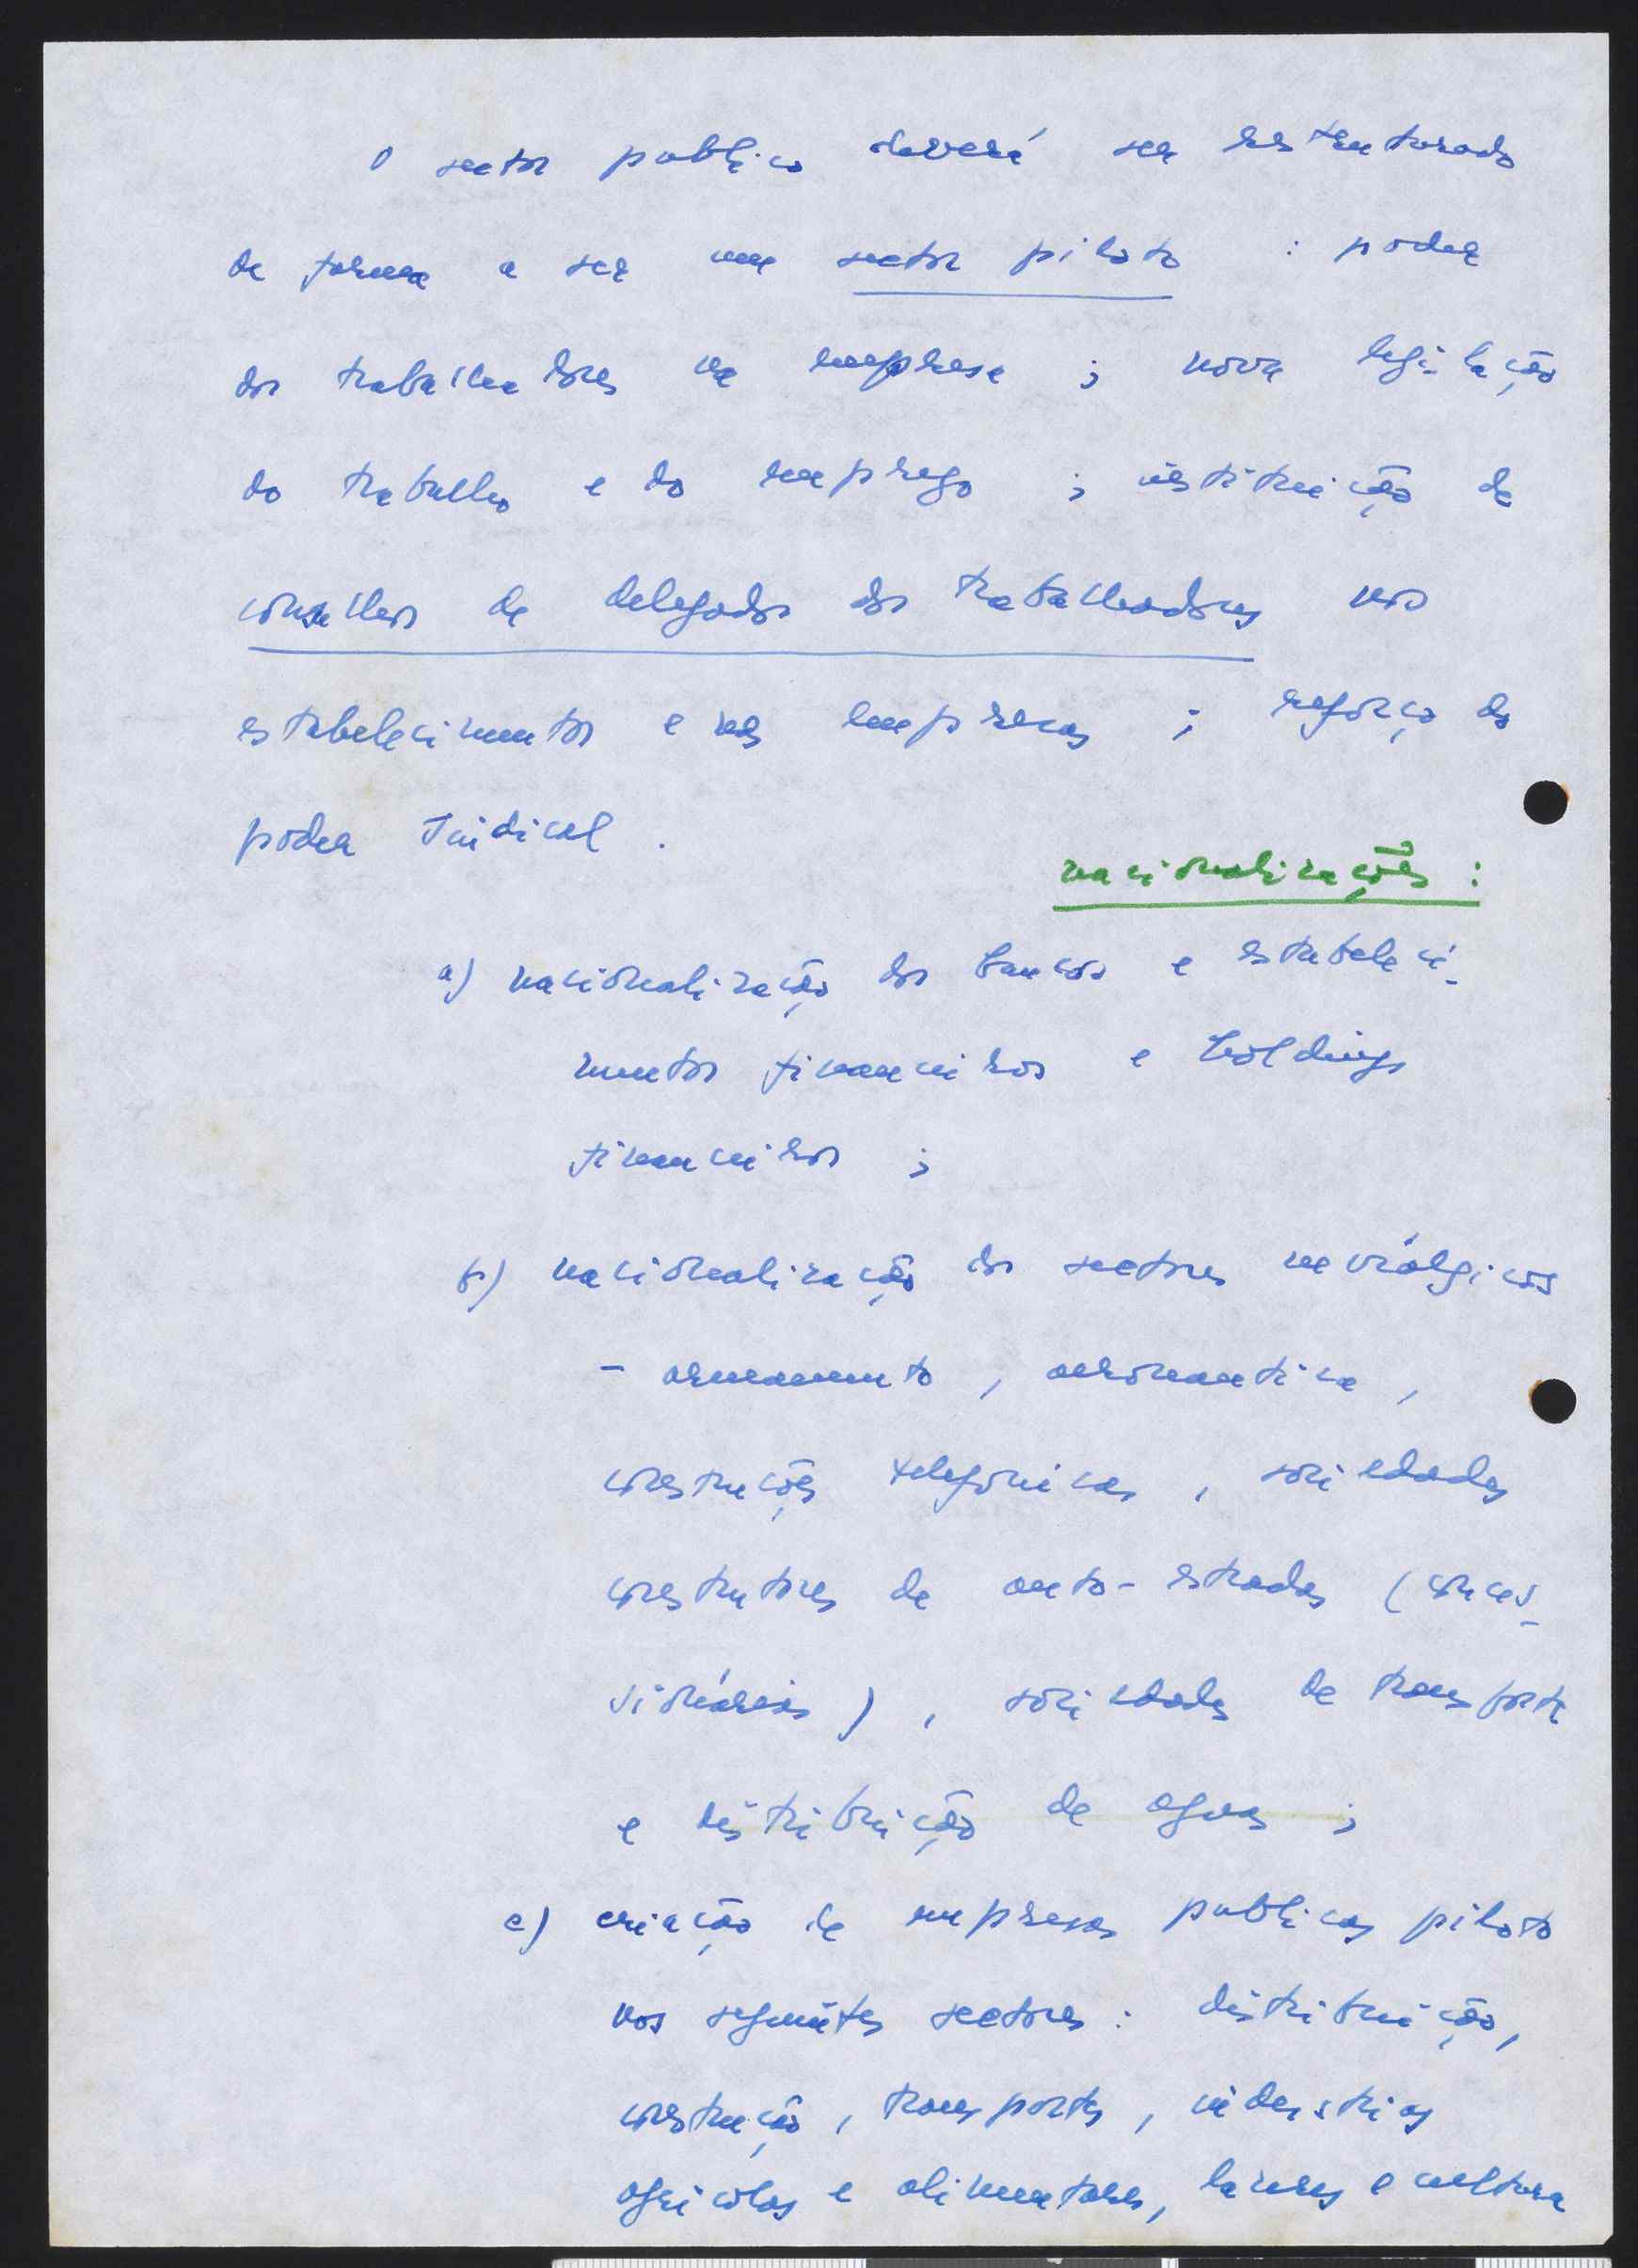 O sector publico deverá ser restruturado
de forma a ser um sector piloto : poder
dos trabalhadores na empresa ; nova legislação
do trabalho e do emprego ; instituição de
conselhos de delegados dos trabalhadores nos
estabelecimentos e nas empresas ; reforço do
poder Sindical .
nacionalizações :
a) nacionalização dos bancos e estabeleci-
mentos financeiros e holdings
financeiros ;
b) nacionalização dos sectores nevrálgicos
- armamento , aeronautica ,
construções telefónicas , sociedades
construtores de auto-estradas (conces-
sionários) , sociedades de transporte
e distribuição de aguas ;
c) criação de empresas publicas piloto
nos seguintes sectores : distribuição,
construção , transportes , industrias
agricolas e alimentares, lazeres e cultura